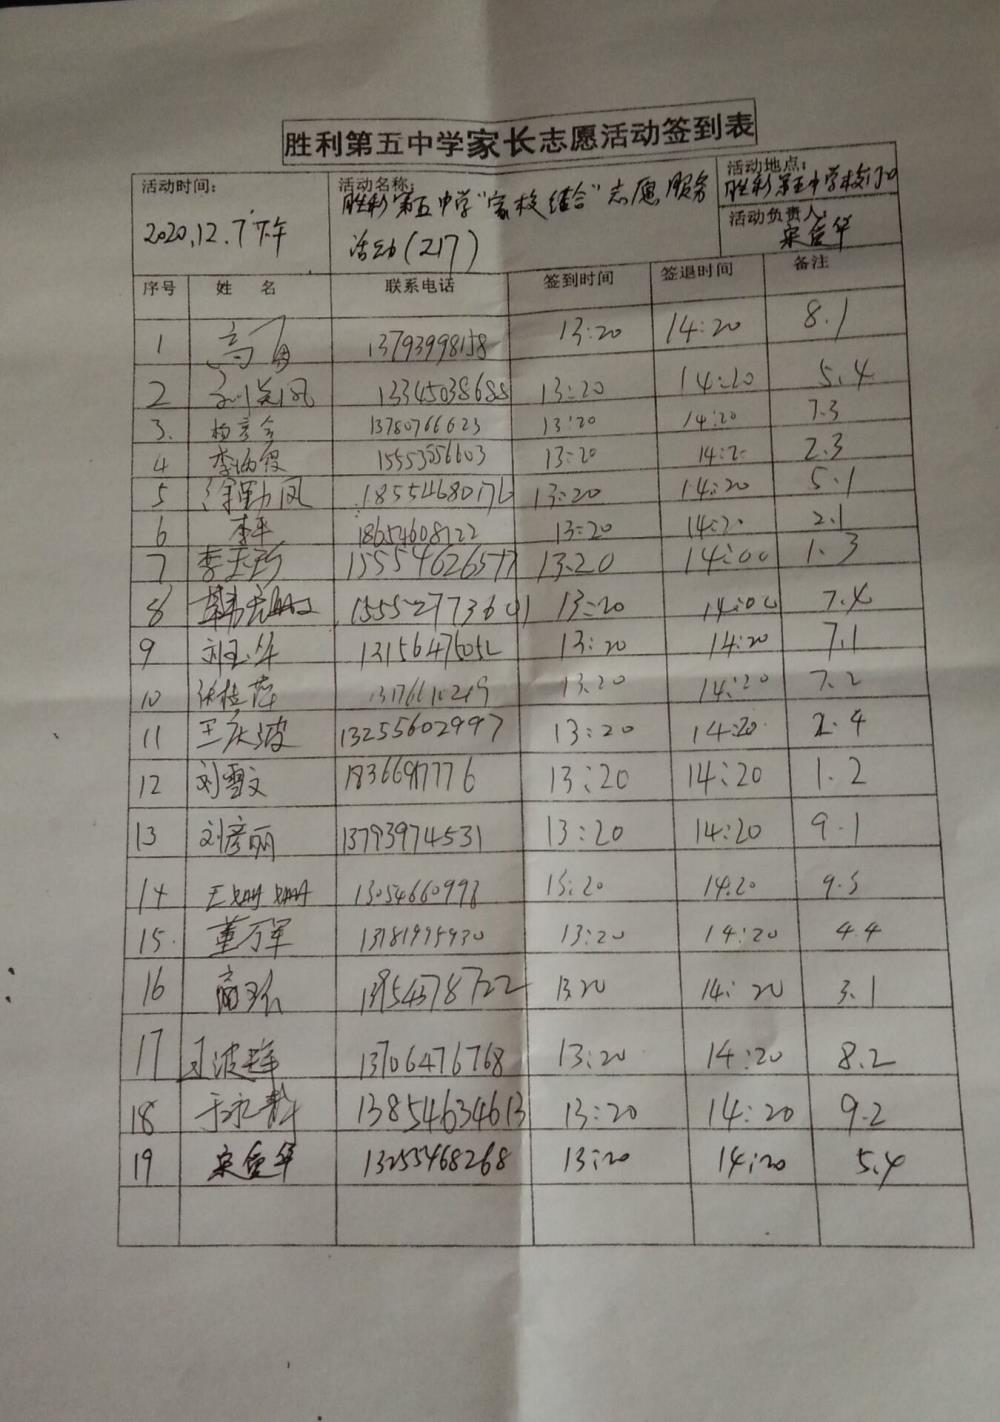 胜利第五中学家长志愿活动签到表
活动时间： 2020.12.7下午
活动名称： 胜利第五中学"家校结合"志愿服务
活动(217)
活动地点： 胜利第五中学校门口
活动负责人：
序号 姓 名 联系电话 签到时间 签退时间 备注
1 13793998158 13:20 14:20 8.1
2 13345038688 13:20 14:20 5.4
3. 13780766623 13:20 14:20 7.3
4 李丙俊 13:20 14:2 2.3
5 徐勤凤 18554680176 13:20 14:20 5.1
6 李平 18654608722 13:20 14:20 2.1
7 李玉珍 15554626577 13:20 14:00 1.3
8 15552773601 13:20 14:00 7.4
9 刘玉华 13156475052 13:20 14:20 7.1
10 张桂萍 13:20 14:20 7.2
11 王庆波 13255602997 13:20 14:20 2.4
12 刘雪文 13:20 14:20 1.2
13 刘彦丽 13793974531 13:20 14:20 9.1
14 王姗姗 13054660993 13:20 14:20 9.3
15. 董万军 13181995930 13:20 14:20 4.4
16 13954378722 13:20 14:20 3.1
17 王波 13706476768 13:20 14:20 8.2
18 于永 13854634613 13:20 14:20 9.2
19 13255468268 13:20 14:20 5.4